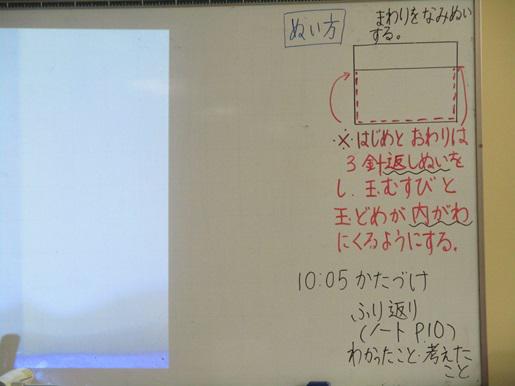 ぬい方
まわりをなみぬい
する。
※はじめとおわりは
3針返しぬいを
し、玉むすびと
玉どめが内がわ
にくるようにする。
10:05かたづけ
ふり返り
(ノートP10)
わかったこと・考えた
こと